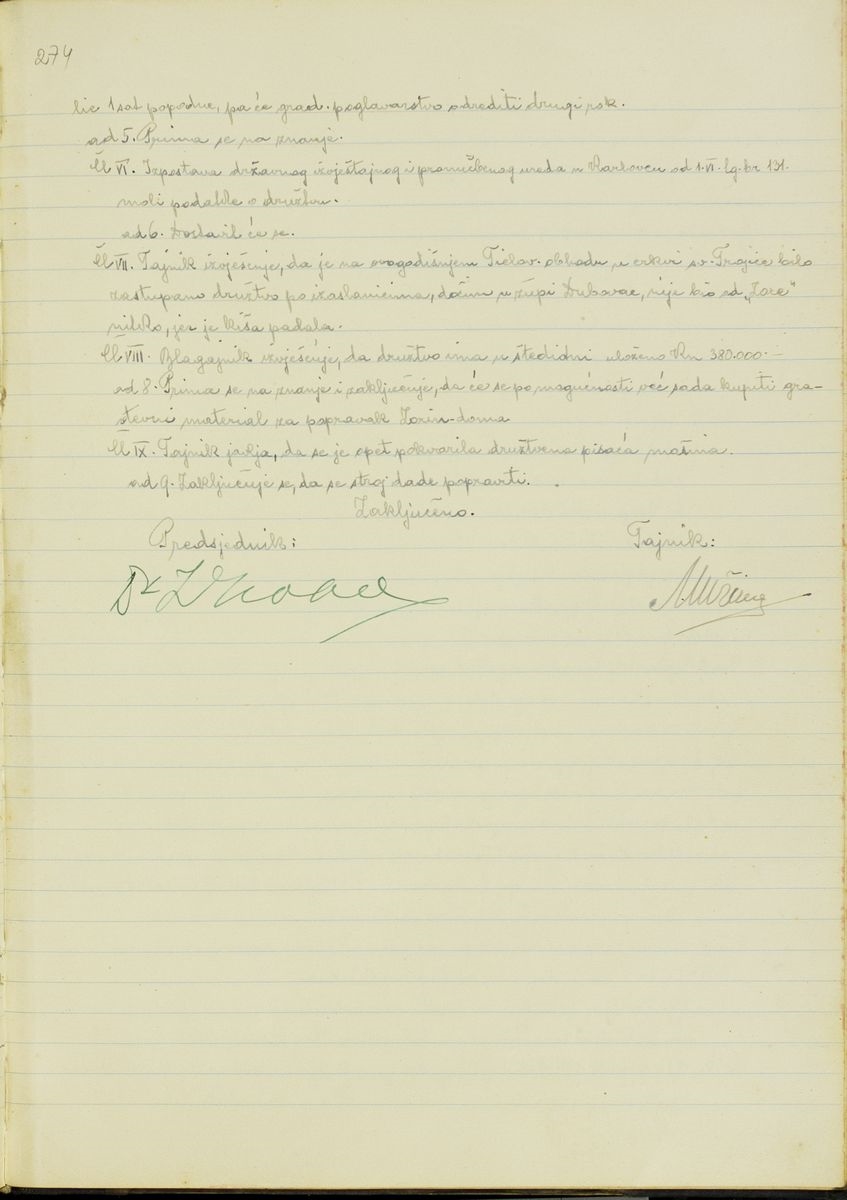 274
lie 1 sat popodne, pa će grad. poglavarstvo odrediti drugi rok.
ad 5. Prima se na znanje.
Čl VI. Izpostava državnog izvještajnog i promičbenog ureda u Karlovcu od 1. VI. tg. br 131.
moli podatke o družtvu.
ad 6. Dostavit će se.
Čl VII. Tajnik izvješćuje, da je na ovogodišnjem Tielov. obhodu u crkvi sv. Trojice bilo
zastupano družtvo po izaslanicima, dočim u župi Dubovac, nije bio od „Zore"
nitko, jer je kiša padala.
Čl VIII. Blagajnik izvješćuje, da družtvo ima u štedioni uloženo Kn 380.000.—
ad 8. Prima se na znanje i zaključuje, da će se po mogućnosti već sada kupiti gra-
đevni material za popravak Zorin-doma
Čl IX. Tajnik javlja, da se je opet pokvarila družtvena pisaća mašina.
ad 9. Zaključuje se, da se stroj dade popraviti.
Zaključeno.
Predsjednik: Tajnik:
Dr